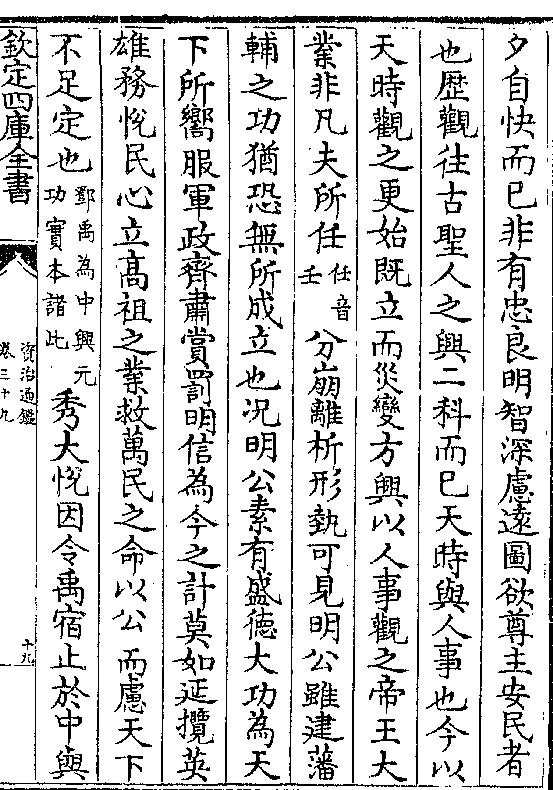 夕自快而已非有忠良明智深慮逺圖欲尊主安民者
也歴觀往古聖人之興二科而已天時與人事也今以
天時觀之更始既立而災變方興以人事觀之帝王大
業非凡夫所任任音壬分崩離析形埶可見明公雖建藩
輔之功猶恐無所成立也况明公素有盛徳大功為天
下所嚮服軍政齊肅賞罰明信為今之計莫如延攬英
雄務恱民心立髙祖之業救萬民之命以公而慮天下
不足定也鄧禹為中興元功實本諸此秀大恱因令禹宿止於中與
欽定四庫全書
資治通鑑
卷三十九
十九